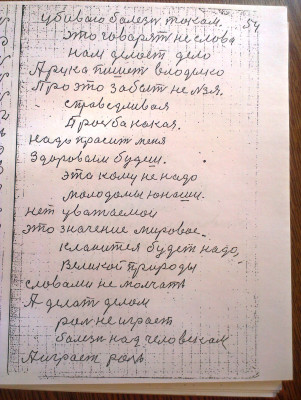 убиваю болезн таксам. 54
это говарят не слова
нам делает дело
А рука пишет владимо
Про это забыт не лзя.
справедливая
Прозба какая.
надо прасит меня
Здоровом будеш.
это кому не надо
молодомы юнаши.
нет уважаемои
это значение мировое.
кланится будет надо,
великой природы
словами не молчать
А делат делом
рол не играет
болезн над человеком
А играет роль